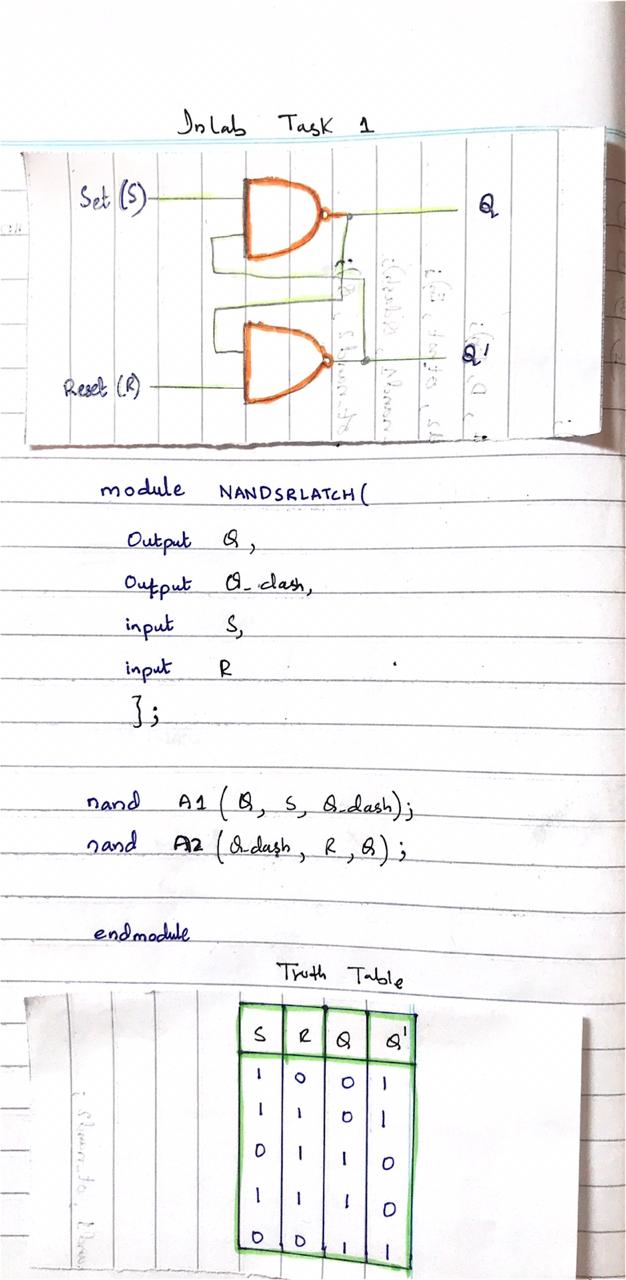 InLab Task 1
Set (S)
Q
Q'
Reset (R)
module NANDSRLATCH(
Output Q,
Output Q_dash,
input S,
input R
];
nand A1 (Q, S, Q_dash);
nand A2 (Q_dash, R, Q);
endmodule
Truth Table
S R Q Q'
1 0 0 1
1 1 0 1
0 1 1 0
1 1 1 0
0 0 1 1